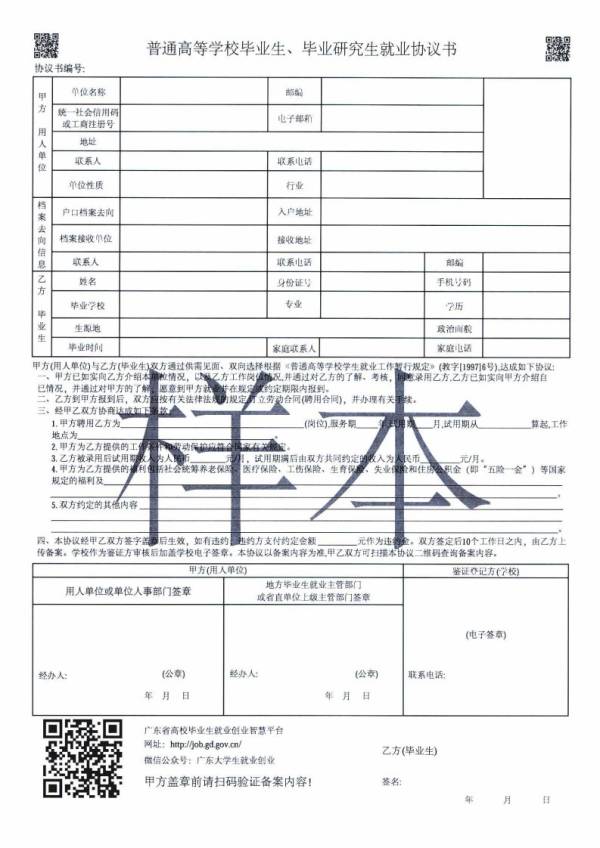 普通高等学校毕业生、毕业研究生就业协议书
协议书编号:
甲方 用人单位
单位名称 邮编
统一社会信用码
或工商注册号 电子邮箱
地址
联系人 联系电话
单位性质 行业
档案去向信息
户口档案去向 入户地址
档案接收单位 接收地址
联系人 联系电话 邮编
乙方 毕业生
姓名 身份证号 手机号码
毕业学校 专业 学历
生源地 政治面貌
毕业时间 家庭联系人 家庭电话
甲方(用人单位)与乙方(毕业生)双方通过供需见面、双向选择根据《普通高等学校学生就业工作暂行规定》(教字[1997]6号),达成如下协议:
一、甲方已如实向乙方介绍本单位情况，以及乙方工作岗位情况,并通过对乙方的了解、考核，同意录用乙方,乙方已如实向甲方介绍自
己情况，并通过对甲方的了解，愿意到甲方就业并在规定或约定期限内报到。
二、乙方到甲方报到后，双方应按有关法律法规的规定订立劳动合同(聘用合同)，并办理有关手续。
三、经甲乙双方协商达成如下条款:
1.甲方聘用乙方为 (岗位),服务期 年,试用期 月,试用期从 算起,工作
地点为
2.甲方为乙方提供的工作条件和劳动保护应符合国家有关规定。
3.乙方被录用后试用期收入为人民币 元/月，试用期满后由双方共同约定的收入为人民币 元/月。
4.甲方为乙方提供的福利包括社会统筹养老保险、医疗保险、工伤保险、生育保险、失业保险和住房公积金（即“五险一金”）等国家
规定的福利及
5.双方约定的其他内容
样本
四、本协议经甲乙双方签字盖章后生效，如有违约，违约方支付约定金额 元作为违约金。双方签定后10个工作日之内，由乙方上
传备案。学校作为鉴证方审核后加盖学校电子签章。本协议以备案内容为准,甲乙双方可扫描本协议二维码查询备案内容。
甲方(用人单位) 鉴证登记方(学校)
用人单位或单位人事部门签章
地方毕业生就业主管部门
或省直单位上级主管部门签章
(电子签章)
经办人: (公章) 经办人: (公章) 联系电话:
年 月 日 年 月 日
广东省高校毕业生就业创业智慧平台
网址: http://job.gd.gov.cn/
微信公众号：广东大学生就业创业
甲方盖章前请扫码验证备案内容!
乙方(毕业生)
签名:
年 月 日